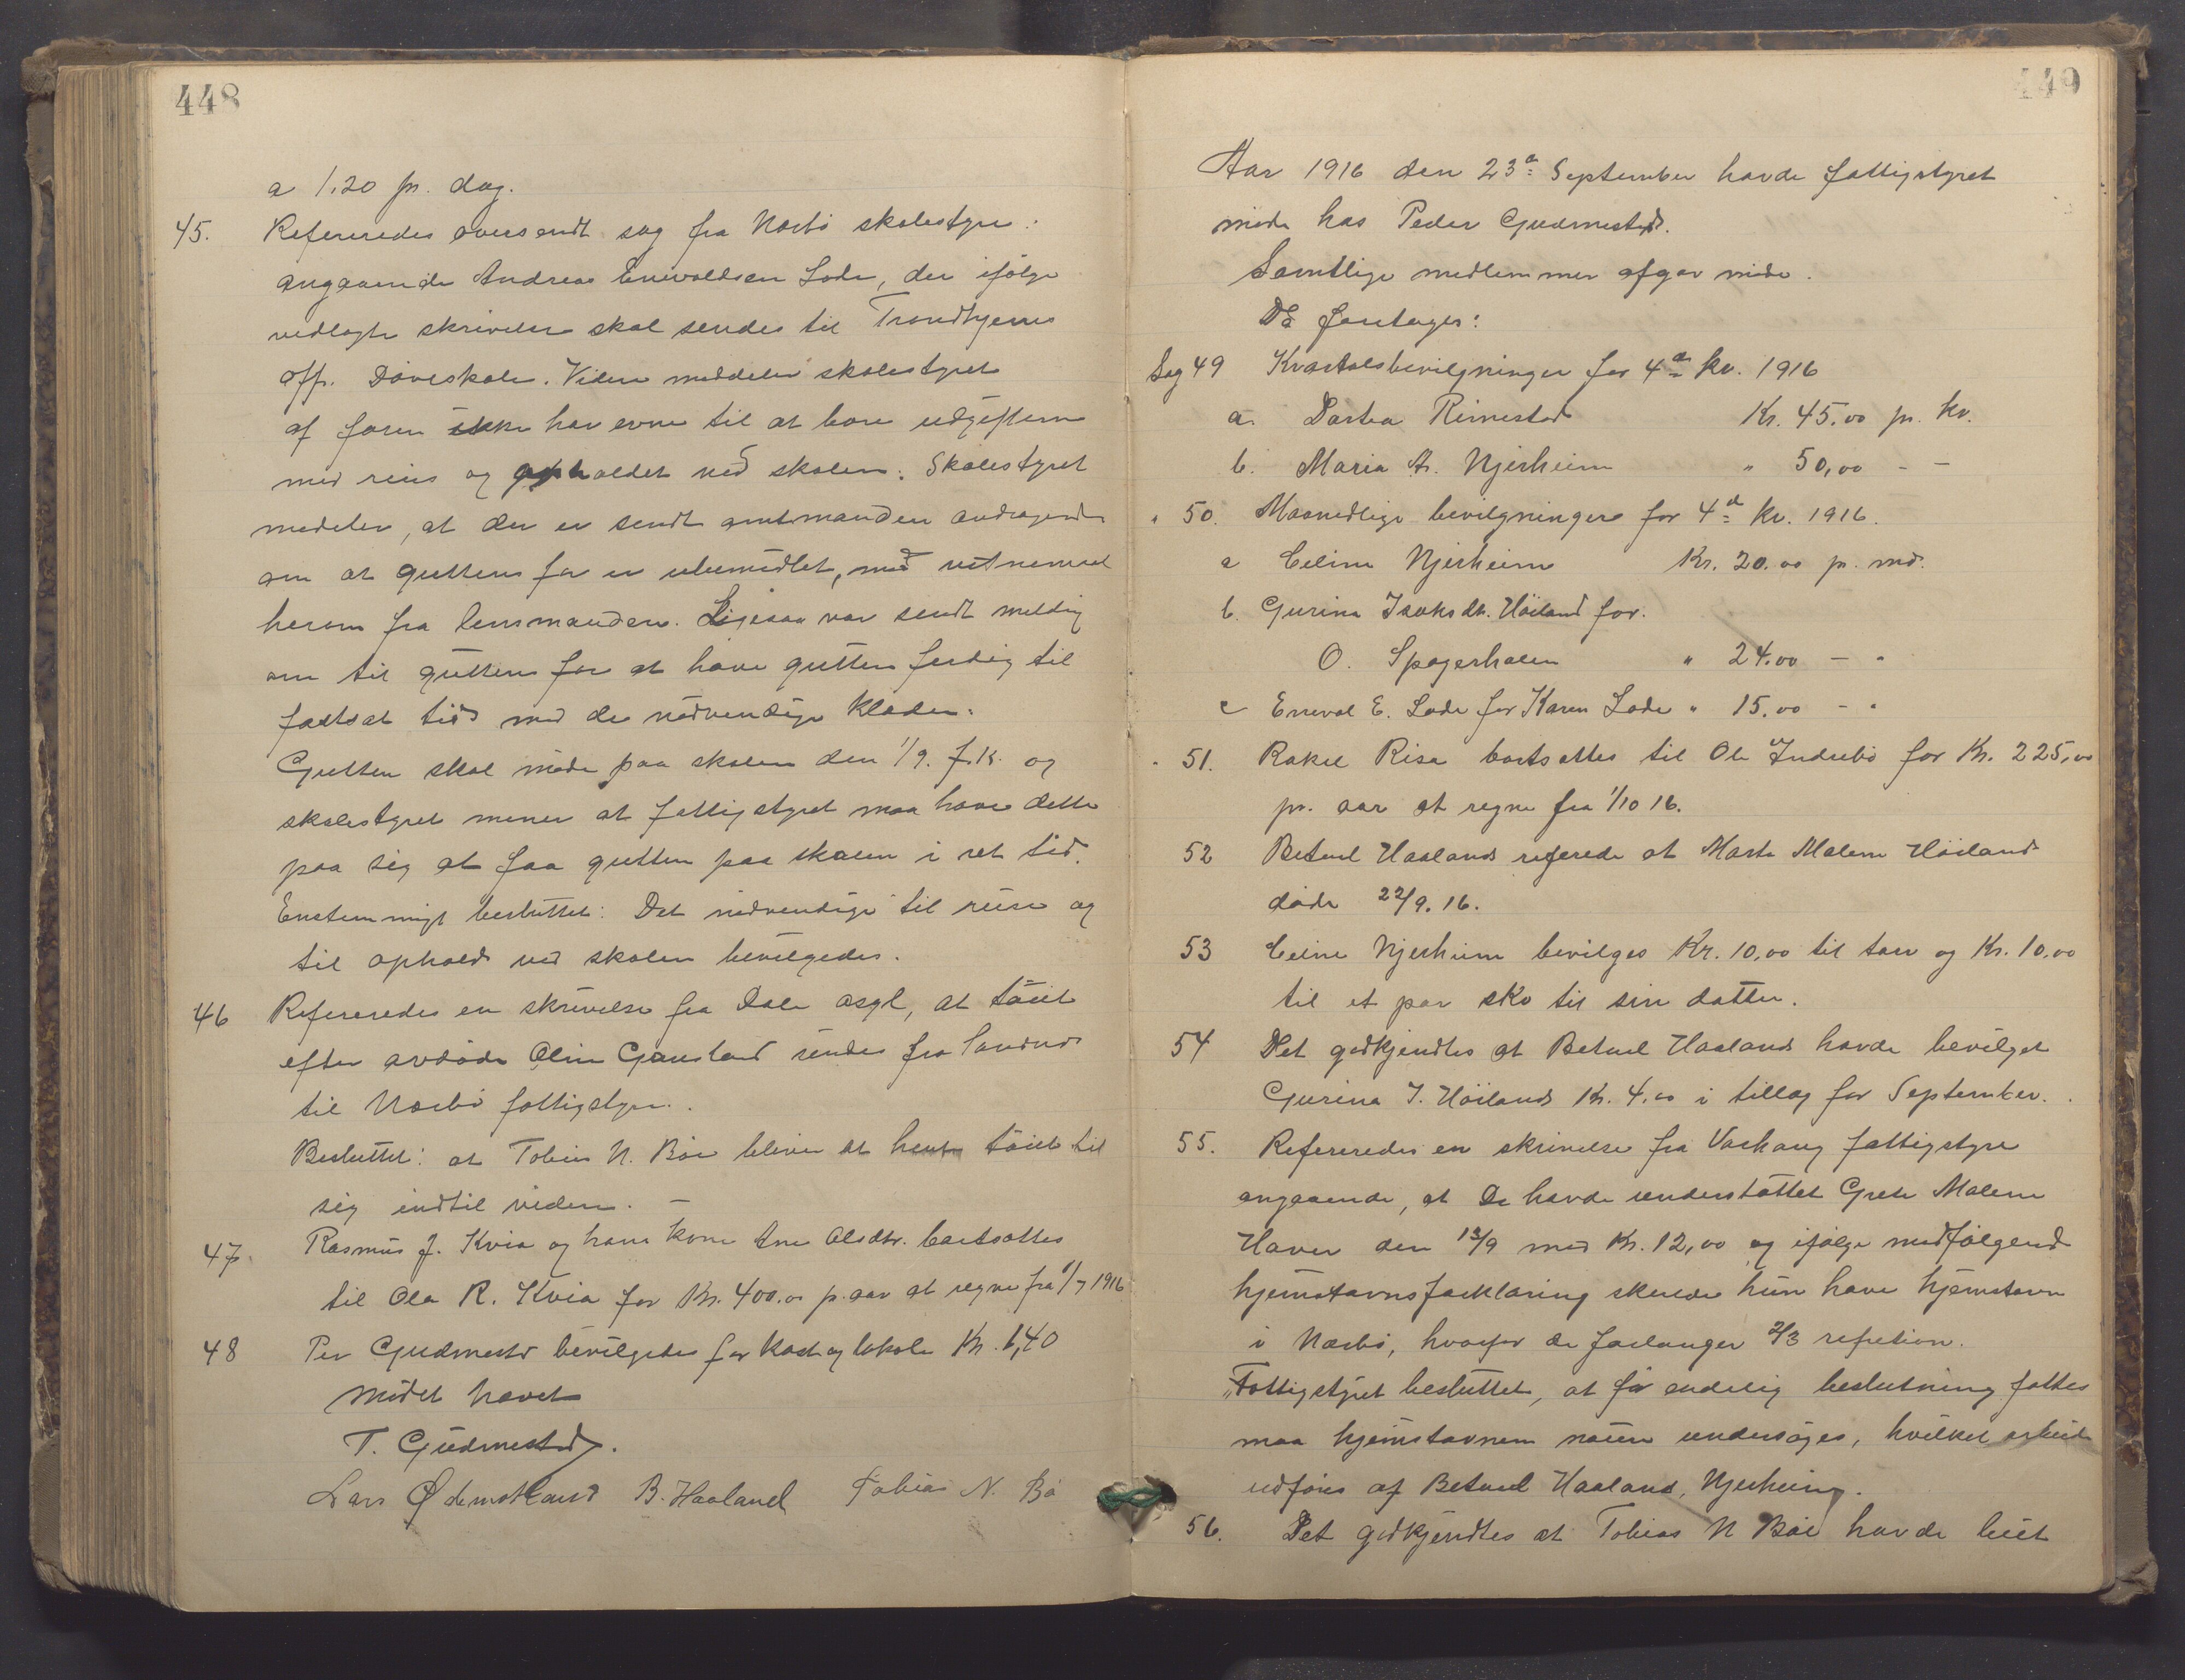 448
a 1.20 pr. dag.
45. Refereredes oversendt sag fra Nærbø skolestyre:
angaaende Andreas Enevoldsen Lode, der ifølge
vedlagte skrivelse skal sendes til Trondhjems
off. Døveskole. Videre meddeler skolestyret
af faren ikke har evne til at bære udgifterne
med reise og opholdet ved skolen. Skolestyret
medeler, at der er sendt amtmanden andragende
om at guttens far er ubemidlet, med vitnemaal
herom fra lensmanden. Ligesaa var sendt melding
om til guttens far at have gutten ferdig til
fastsat tid med de nødvendige klæder.
Gutten skal møde paa skolen den 1/9. f.k. og
skolestyret mener at fattigstyret maa have dette
paa sig at faa gutten paa skolen i ret tid.
Enstemmigt besluttet: Det nødvendige til reise og
til ophold ved skolen bevilgedes.
46 Refereredes en skrivelse fra Dale asyl, at tøiet
efter avdøde Oline Gausland sendes fra Sandnes
til Nærbø fattigstyre.
Besluttet: at Tobias N. Bøe bliver at hente tøiet til
sig indtil videre. –
47. Rasmus J. Kvia og hans kone Ane Olsdtr. bortsattes
til Ola R. Kvia for Kr. 400.00 p. aar at regne fra 1/7 1916
48 Per Gudmestad bevilgedes for kost og lokale Kr. 6,40
Mødet hævet
T. Gudmestad.
Lars Ødemotland B. Haaland Tobias N. Bø
449
Aar 1916 den 23d September havde fattigstyret
møde hos Peder Gudmestad.
Samtlige medlemmer afgav møde.
Da foretages:
Sag 49 Kvartalsbevilgninger for 4de kv. 1916
a. Dortea Rimestad Kr. 45.00 pr. kv.
b. Maria A. Njerheim " 50,00 – –
" 50. Maanedlige bevilgninger for 4de kv. 1916.
a Celine Njerheim Kr. 20.00 pr. md.
b. Gurina Isaksdt. Høiland for.
O. Spagerhalen " 24.00 – "
c Eneval E. Lode for Karen Lode " 15.00 – "
" 51. Rakel Risa bortsattes til Ole Indrebø for Kr. 225,00
pr. aar at regne fra 1/10 16.
52 Betuel Haaland referede at Marta Malene Høiland
døde 22/9. 16.
53 Celine Njerheim bevilges Kr. 10,00 til torv og Kr. 10.00
til et par sko til sin datter.
54 Det godkjendtes at Betuel Haaland havde bevilget
Gurina I. Høiland Kr. 4.00 i tillæg for September.
55. Refereredes en skrivelse fra Varhaug fattigstyre
angaaende, at De havde understøttet Grete Malene
Haver den 13/9 med Kr. 12,00 og ifølge medfølgende
hjemstavnsforklaring skulde hun have hjemstavn
i Nærbø, hvorfor de forlanger 2/3 refution.
"Fattigstyret besluttet, at før endelig beslutning fattes
maa hjemstavnen nøiere undersøges, hvilket arbeide
udføres af Betuel Haaland, Njerheim.
56. Det godkjendtes at Tobias N Bøe havde leiet